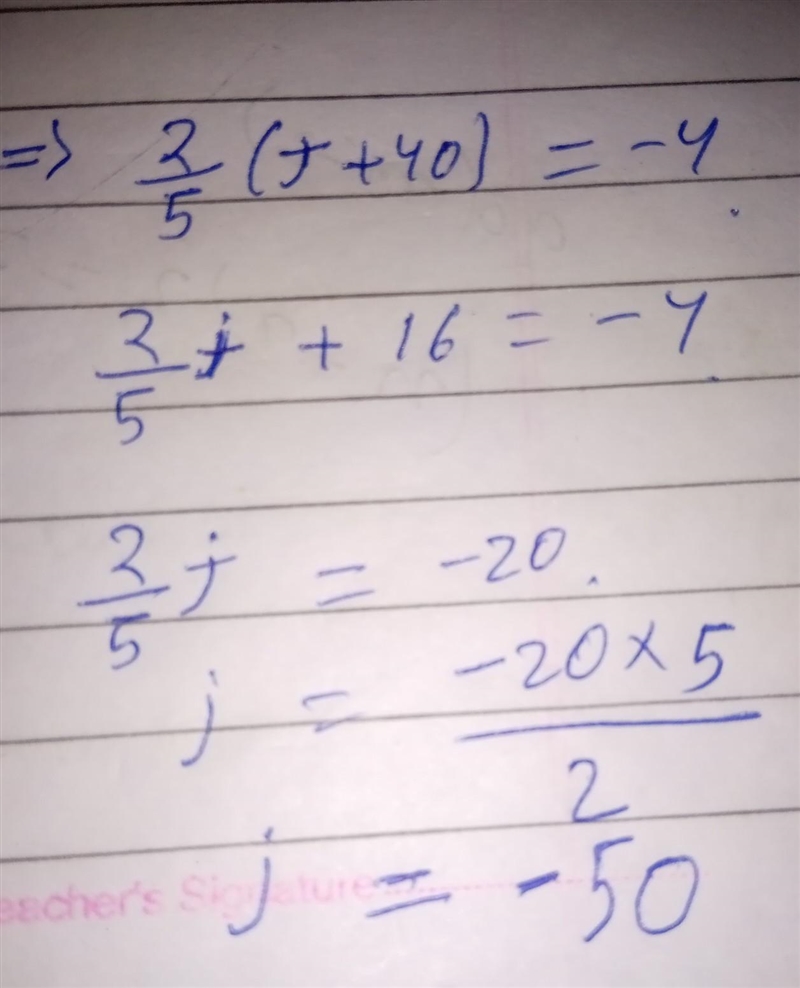 => 2/5 (j + 40) = -4
2/5 j + 16 = -4
2/5 j = -20.
j = -20 × 5 / 2
j = -50
Teacher's Signature